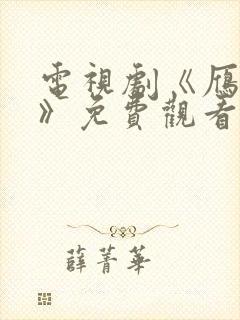 電視劇《雁
》免費觀看
薛菁華